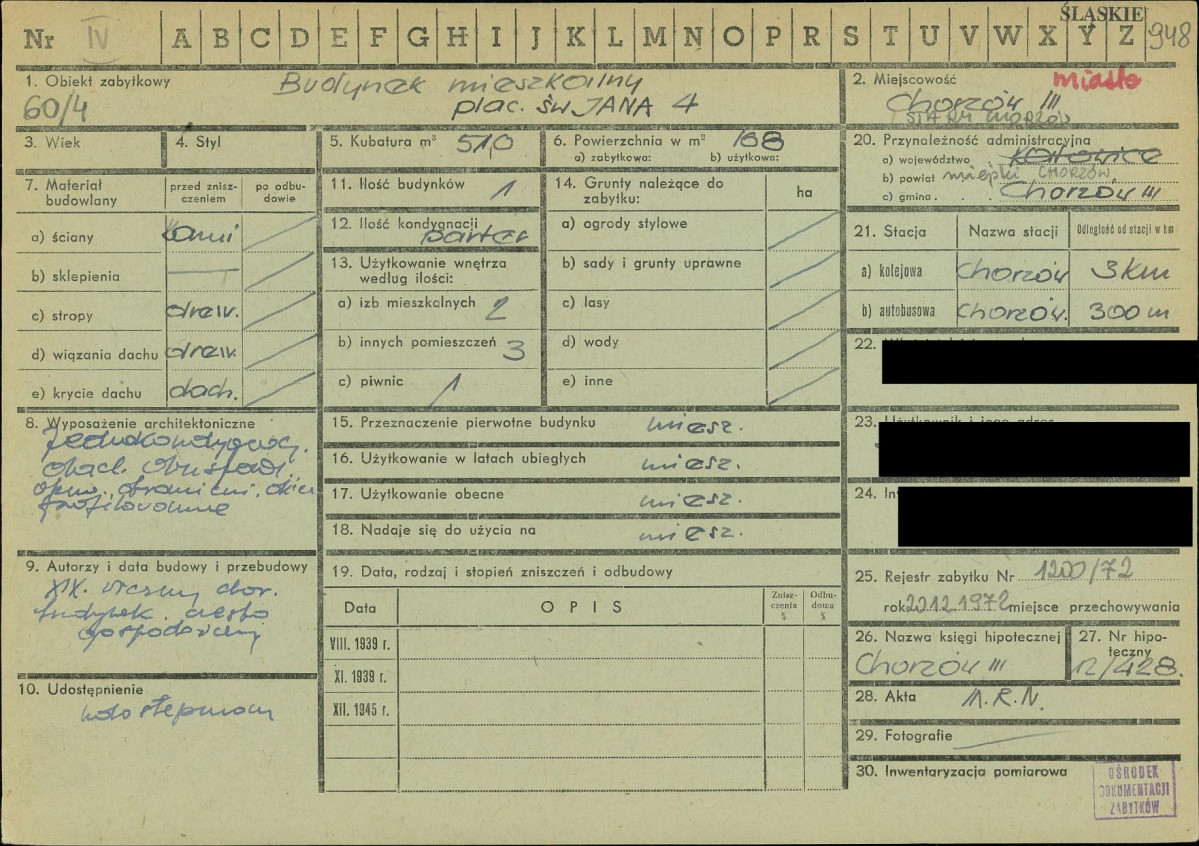 ŚLĄSKIE
Nr IV A B C D E F G H I J K L M N O P R S T U V W X Y Z 948
1. Obiekt zabytkowy Budynek mieszkalny
60/4 plac. św. JANA 4
2. Miejscowość miasto
Chorzów III
STARY CHORZÓW
3. Wiek
4. Styl
5. Kubatura m³ 510
6. Powierzchnia w m² 168
a) zabytkowa: b) użytkowa:
20. Przynależność administracyjna
a) województwo Katowice
b) powiat miejski CHORZÓW
c) gmina Chorzów III
7. Materiał budowlany
przed zniszczeniem
po odbudowie
a) ściany kami
b) sklepienia —
c) stropy drew.
d) wiązania dachu drew.
e) krycie dachu dach.
11. Ilość budynków 1
12. Ilość kondygnacji parter
13. Użytkowanie wnętrza
według ilości:
a) izb mieszkalnych 2
b) innych pomieszczeń 3
c) piwnic 1
14. Grunty należące do
zabytku:
ha
a) ogrody stylowe
b) sady i grunty uprawne
c) lasy
d) wody
e) inne
21. Stacja Nazwa stacji Odległość od stacji w km
a) kolejowa Chorzów 3 km
b) autobusowa Chorzów. 300 m
22.
8. Wyposażenie architektoniczne
Jednokondygnacj.
dach
profilowanne
15. Przeznaczenie pierwotne budynku miesz.
16. Użytkowanie w latach ubiegłych miesz.
17. Użytkowanie obecne miesz.
18. Nadaje się do użycia na miesz.
23. Użytkownik i jego adres
24. In
9. Autorzy i data budowy i przebudowy
XIX.
budynek
gospodarczy
10. Udostępnienie
19. Data, rodzaj i stopień zniszczeń i odbudowy
Data OPIS Zniszczenia % Odbudowa %
VIII. 1939 r.
XI. 1939 r.
XII. 1945 r.
25. Rejestr zabytku Nr 1200/72
rok 20.12.1972 miejsce przechowywania
26. Nazwa księgi hipotecznej
Chorzów III
27. Nr hipoteczny
12/428.
28. Akta M.R.N.
29. Fotografie —
30. Inwentaryzacja pomiarowa
OŚRODEK
DOKUMENTACJI
ZABYTKÓW